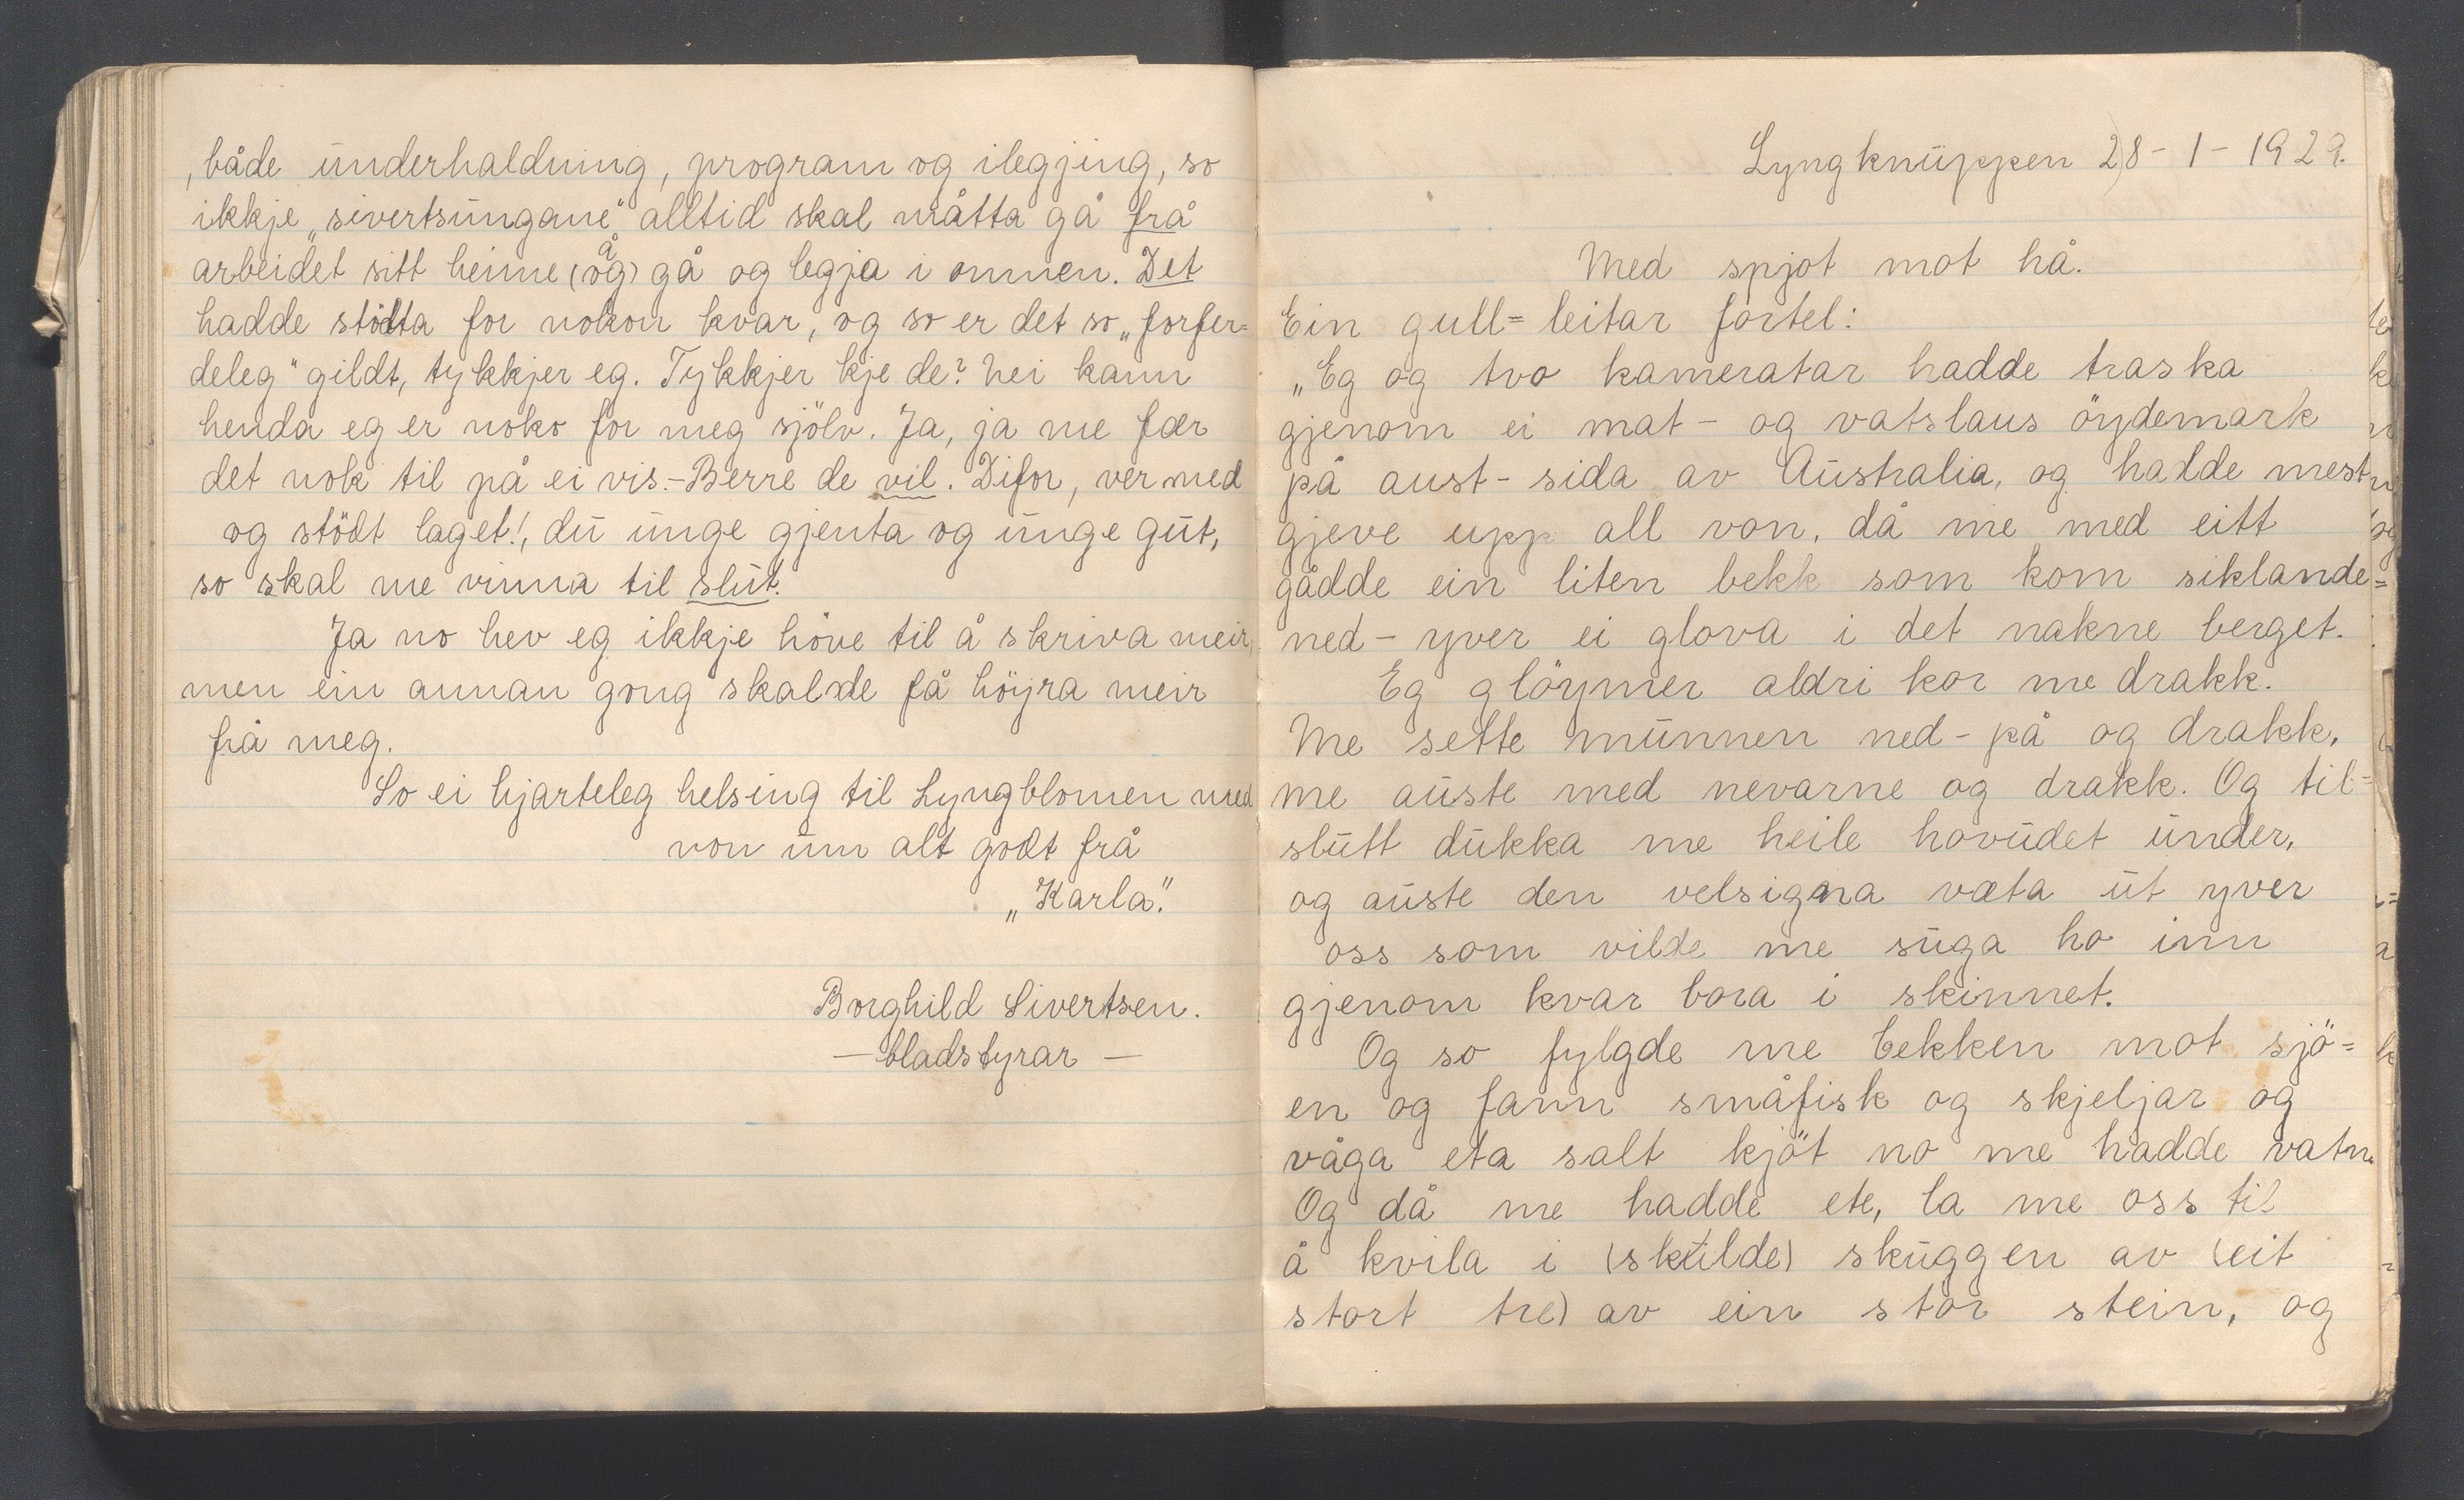 , både underhaldning, program og ilegjing, so
ikkje „sivertsungane" alltid skal måtta gå frå
arbeidet sitt heime (og) å gå og legja i omnen. Det
hadde stödtta for nokon kvar, og so er det so „forfer=
deleg" gildt, tykkjer eg. Tykkjer kje de? Nei kann
henda eg er noko for meg sjölv. Ja, ja me fær
det nok til på ei vis.- Berre de vil. Difor, ver med
og stödt laget!, du unge gjenta og unge gut,
so skal me vinna til slut.
Ja no hev eg ikkje höve til å skriva meir,
men ein annan gong skal de få höyra meir
frå meg.
So ei hjarteleg helsing til Lyngblomen med
von um alt godt frå
„Karla".
Borghild Sivertsen.
- bladstyrar -
Lyngknuppen 28 - 1 - 1929.
Med spjot mot hå.
Ein gull=leitar fortel:
„Eg og tvo kameratar hadde traska
gjenom ei mat- og vatslaus öydemark
på aust-sida av Australia, og hadde mest
gjeve upp all von, då me med eitt
gådde ein liten bekk som kom siklande=
ned-yver ei glova i det nakne berget.
Eg glöymer aldri kor me drakk.
Me sette munnen ned-på og drakk,
me auste med nevarne og drakk. Og til=
slutt dukka me heile hovudet under,
og auste den velsigna væta ut yver
oss som vilde me suga ho inn
gjenom kvar bora i skinnet.
Og so fylgde me bekken mot sjö=
en og fann småfisk og skjeljar og
våga eta salt kjöt no me hadde vatn.
Og då me hadde ete, la me oss til
å kvila i (skulde) skuggen av (eit
stort tre) av ein stor stein, og